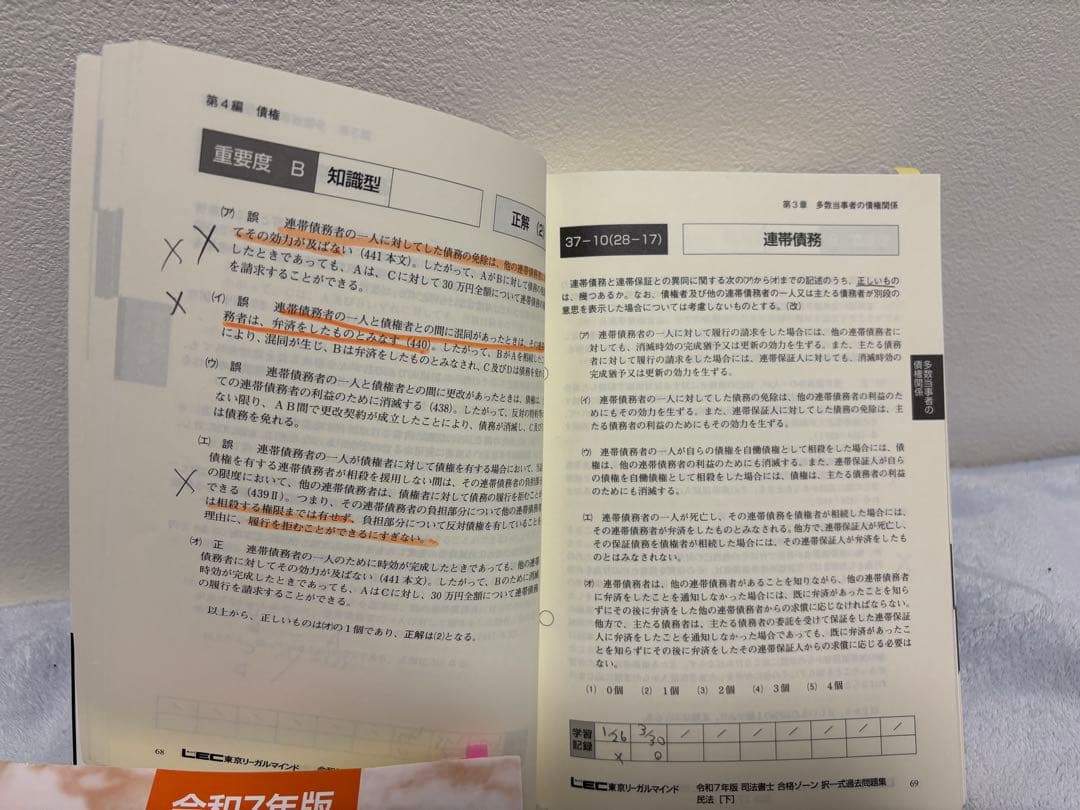 第4編 債権
重要度 B
知識型
正解 (2
(ア) 誤 連帯債務者の一人に対してした債務の免除は、他の連帯債務者
てその効力が及ばない(441本文)。したがって、AがBに対して債務の
したときであっても、Aは、Cに対して30万円全額について連帯債務の
を請求することができる。
(イ) 誤 連帯債務者の一人と債権者との間に混同があったときは、その連
務者は、弁済をしたものとみなす(440)。したがって、BがAを相続した
により、混同が生じ、Bは弁済をしたものとみなされ、C及びDは債務を免れ
(ウ) 誤 連帯債務者の一人と債権者との間に更改があったときは、債権は、
ての連帯債務者の利益のために消滅する(438)。したがって、反対の特約
ない限り、AB間で更改契約が成立したことにより、債務が消滅し、C及び
は債務を免れる。
(エ) 誤 連帯債務者の一人が債権者に対して債権を有する場合において、当該
債権を有する連帯債務者が相殺を援用しない間は、その連帯債務者の負担部分
の限度において、他の連帯債務者は、債権者に対して債務の履行を拒むことが
できる(439Ⅱ)。つまり、その連帯債務者の負担部分について他の連帯債務
は相殺する権限までは有せず、負担部分について反対債権を有していることを
理由に、履行を拒むことができるにすぎない。
(オ) 正 連帯債務者の一人のために時効が完成したときであっても、他の連帯
債務者に対してその効力が及ばない(441本文)。したがって、Bのために消滅
時効が完成したときであっても、AはCに対し、30万円全額について連帯債務
の履行を請求することができる。
以上から、正しいものは(オ)の1個であり、正解は(2)となる。
68 LEC東京リーガルマインド
令和7年版
第3章 多数当事者の債権関係
37-10(28-17)
連帯債務
連帯債務と連帯保証との異同に関する次の(ア)から(オ)までの記述のうち、正しいもの
は、幾つあるか。なお、債権者及び他の連帯債務者の一人又は主たる債務者が別段の
意思を表示した場合については考慮しないものとする。(改)
(ア) 連帯債務者の一人に対して履行の請求をした場合には、他の連帯債務者に
対しても、消滅時効の完成猶予又は更新の効力を生ずる。また、主たる債務
者に対して履行の請求をした場合には、連帯保証人に対しても、消滅時効の
完成猶予又は更新の効力を生ずる。
(イ) 連帯債務者の一人に対してした債務の免除は、他の連帯債務者の利益のた
めにもその効力を生ずる。また、連帯保証人に対してした債務の免除は、主た
る債務者の利益のためにもその効力を生ずる。
(ウ) 連帯債務者の一人が自らの債権を自働債権として相殺をした場合には、債
権は、他の連帯債務者の利益のためにも消滅する。また、連帯保証人が自ら
の債権を自働債権として相殺をした場合には、債権は、主たる債務者の利益
のためにも消滅する。
(エ) 連帯債務者の一人が死亡し、その連帯債務を債権者が相続した場合には、
その連帯債務者が弁済をしたものとみなされる。他方で、連帯保証人が死亡し、
その保証債務を債権者が相続した場合には、その連帯保証人が弁済をしたも
のとはみなされない。
(オ) 連帯債務者は、他の連帯債務者があることを知りながら、他の連帯債務者
に弁済をしたことを通知しなかった場合には、既に弁済があったことを知ら
ずにその後に弁済をした他の連帯債務者からの求償に応じなければならない。
他方で、主たる債務者は、主たる債務者の委託を受けて保証をした連帯保証
人に弁済をしたことを通知しなかった場合であっても、既に弁済があったこ
とを知らずにその後に弁済をしたその連帯保証人からの求償に応じる必要は
ない。
(1) 0個 (2) 1個 (3) 2個 (4) 3個 (5) 4個
多数当事者の
債権関係
学習
記録
1/26 3/30
LEC東京リーガルマインド 令和7年版 司法書士 合格ゾーン 択一式過去問題集 69
民法[下]